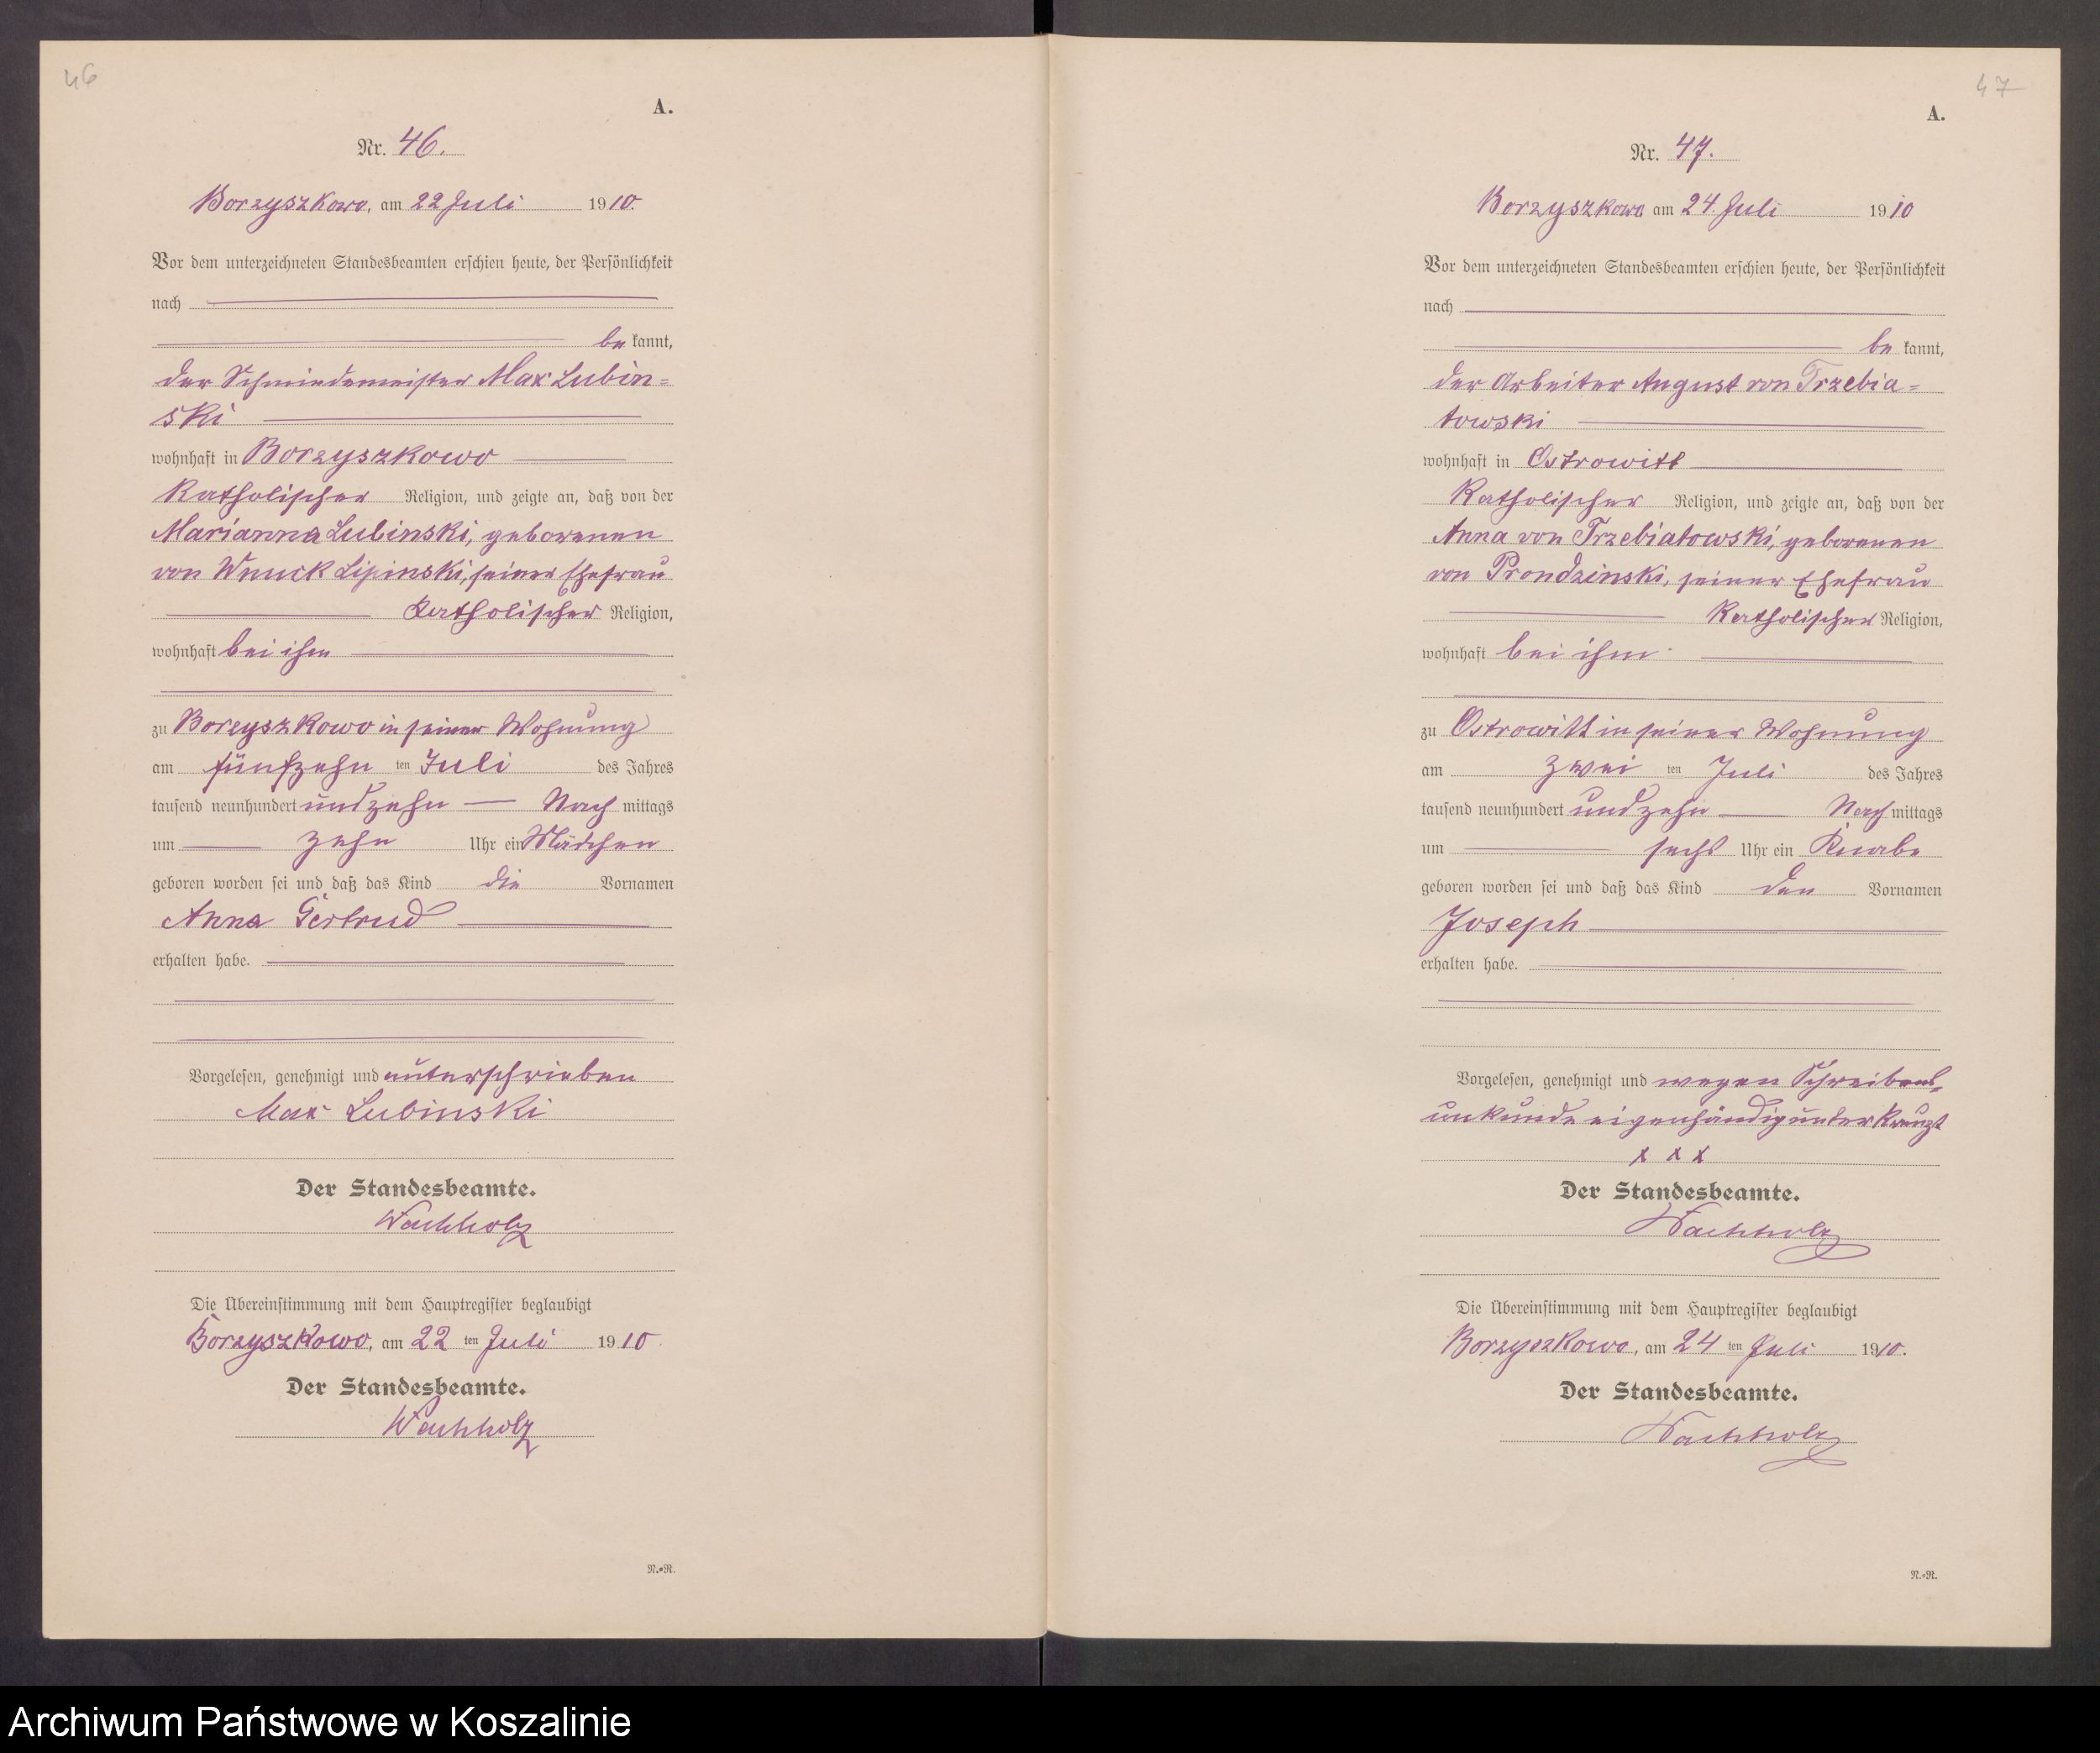 46
A.
Nr. 46.
Borzyszkowo, am 22 Juli 1910.
Vor dem unterzeichneten Standesbeamten erschien heute, der Persönlichkeit
nach
be kannt,
der Schmiedemeister Max Lubin=
ski
wohnhaft in Borzyszkowo
Katholischer Religion, und zeigte an, daß von der
Marianna Lubinski, geborenen
von Wnuck Lipinski, seiner Ehefrau
Katholischer Religion,
wohnhaft bei ihm
zu Borzyszkowo in seiner Wohnung
am fünfzehn ten Juli des Jahres
tausend neunhundert und zehn Nach mittags
um zehn Uhr ein Mädchen
geboren worden sei und daß das Kind die Vornamen
Anna Gertrud
erhalten habe.
Vorgelesen, genehmigt und unterschrieben
Max Lubinski
Der Standesbeamte.
Wachholz
Die Übereinstimmung mit dem Hauptregister beglaubigt
Borzyszkowo, am 22 ten Juli 1910.
Der Standesbeamte.
Wachholz
N.=N.
47
A.
Nr. 47.
Borzyszkowo am 24. Juli 1910
Vor dem unterzeichneten Standesbeamten erschien heute, der Persönlichkeit
nach
be kannt,
der Arbeiter August von Trzebia=
towski
wohnhaft in Ostrowitt
Katholischer Religion, und zeigte an, daß von der
Anna von Trzebiatowski, geborenen
von Prondzinski, seiner Ehefrau
Katholischer Religion,
wohnhaft bei ihm
zu Ostrowitt in seiner Wohnung
am zwei ten Juli des Jahres
tausend neunhundert und zehn Nach mittags
um sechs Uhr ein Knabe
geboren worden sei und daß das Kind den Vornamen
Joseph
erhalten habe.
Vorgelesen, genehmigt und wegen Schreibens=
unkunde eigenhändig unterkreuzt
x x x
Der Standesbeamte.
Wachholz
Die Übereinstimmung mit dem Hauptregister beglaubigt
Borzyszkowo, am 24 ten Juli 1910.
Der Standesbeamte.
Wachholz
N.=N.
Archiwum Państwowe w Koszalinie